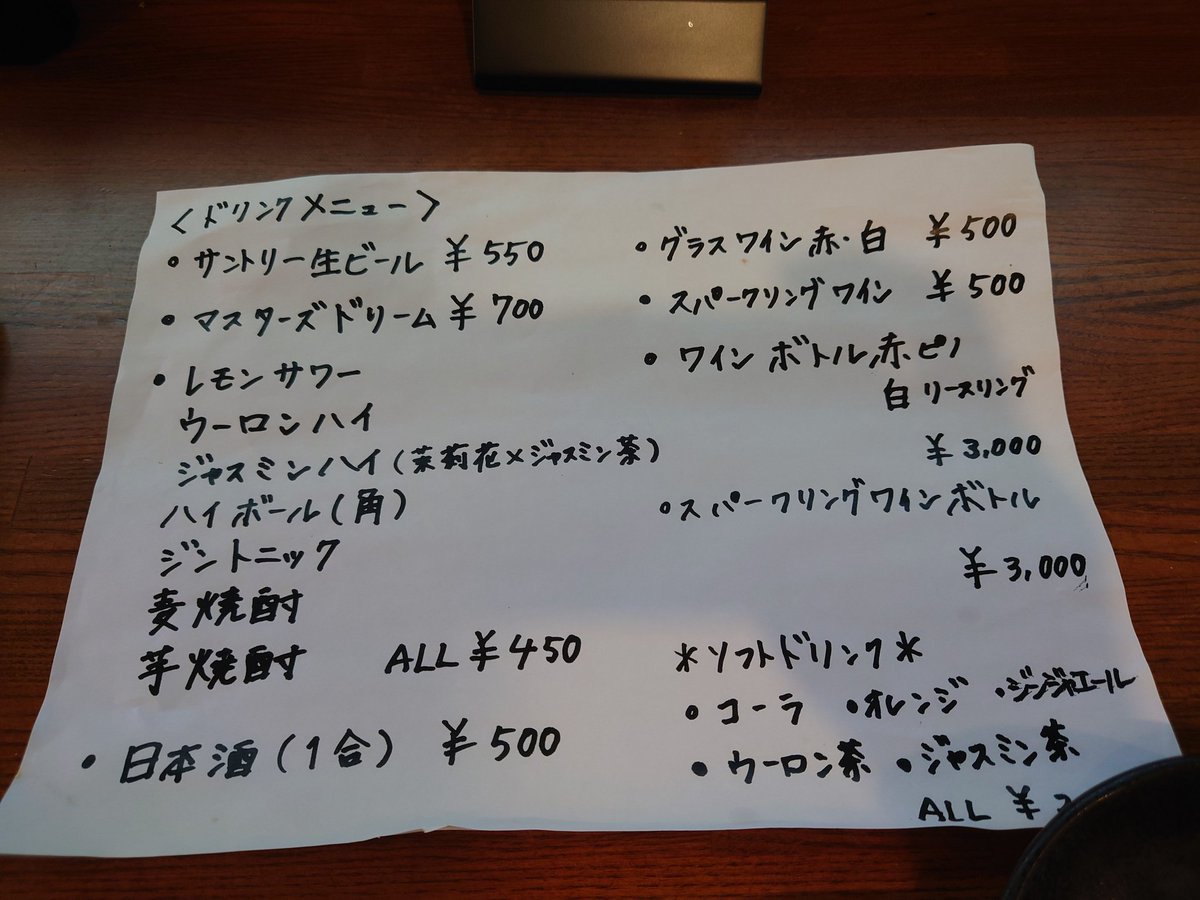 ＜ドリンクメニュー＞
• サントリー生ビール ¥550
• マスターズドリーム ¥700
• レモンサワー
ウーロンハイ
ジャスミンハイ(茉莉花×ジャスミン茶)
ハイボール(角)
ジントニック
麦焼酎
芋焼酎 ALL ¥450
• 日本酒(1合) ¥500
• グラスワイン赤・白 ¥500
• スパークリングワイン ¥500
• ワインボトル赤ピノ
白リースリング
¥3,000
• スパークリングワインボトル
¥3,000
*ソフトドリンク*
• コーラ • オレンジ • ジンジャエール
• ウーロン茶 • ジャスミン茶
ALL ¥